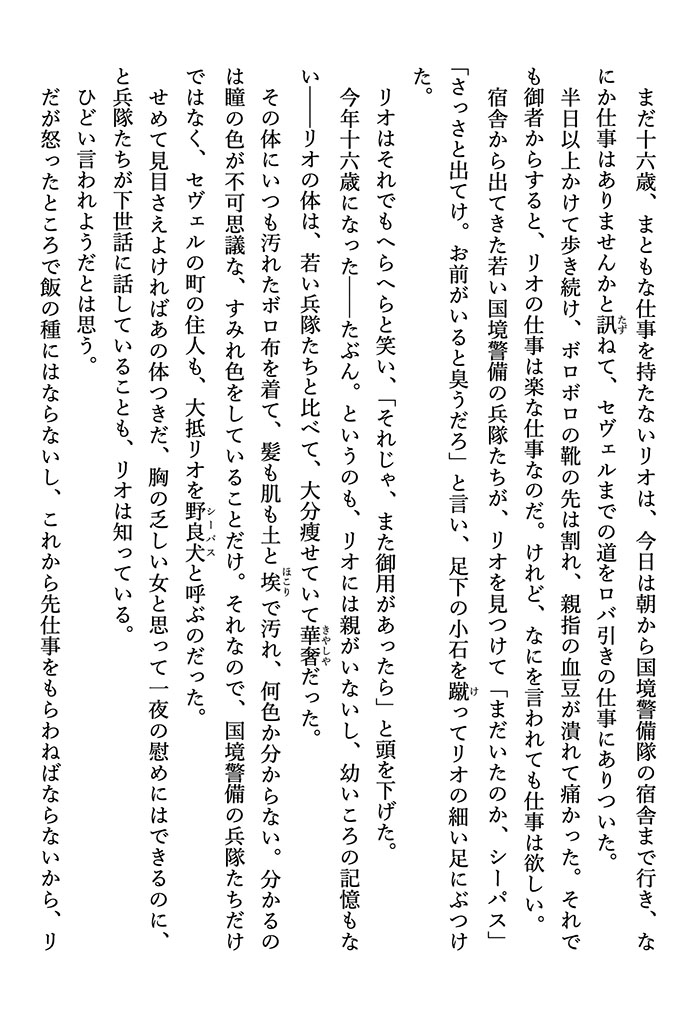 まだ十六歳、まともな仕事を持たないリオは、今日は朝から国境警備隊の宿舎まで行き、な
にか仕事はありませんかと訊ねて、セヴェルまでの道をロバ引きの仕事にありついた。
半日以上かけて歩き続け、ボロボロの靴の先は割れ、親指の血豆が潰れて痛かった。それで
も御者からすると、リオの仕事は楽な仕事なのだ。けれど、なにを言われても仕事は欲しい。
宿舎から出てきた若い国境警備の兵隊たちが、リオを見つけて「まだいたのか、シーパス」
「さっさと出てけ。お前がいると臭うだろ」と言い、足下の小石を蹴ってリオの細い足にぶつけ
た。
リオはそれでもへらへらと笑い、「それじゃ、また御用があったら」と頭を下げた。
今年十六歳になった――たぶん。というのも、リオには親がいないし、幼いころの記憶もな
い――リオの体は、若い兵隊たちと比べて、大分痩せていて華奢だった。
その体にいつも汚れたボロ布を着て、髪も肌も土と埃で汚れ、何色か分からない。分かるの
は瞳の色が不可思議な、すみれ色をしていることだけ。それなので、国境警備の兵隊たちだけ
ではなく、セヴェルの町の住人も、大抵リオを野良犬と呼ぶのだった。
せめて見目さえよければあの体つきだ、胸の乏しい女と思って一夜の慰めにはできるのに、
と兵隊たちが下世話に話していることも、リオは知っている。
ひどい言われようだとは思う。
だが怒ったところで飯の種にはならないし、これから先仕事をもらわねばならないから、リ